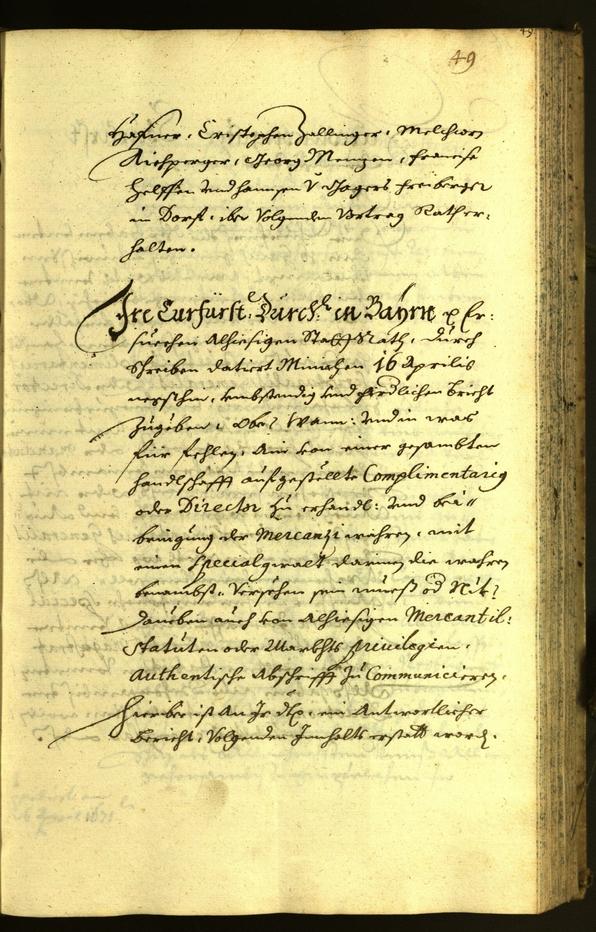 49
49
Hafner, Cristophen Zallinger, Melchiorn
Kiechperger, Georg Menzen, Francisc
Helffen und Hannsen V Jagers Freiberger
in Dorf, iber Volgenden Vortrag Rath er:
halten.
Ire Curfürstl: Durchl: in Bayrn p Er:
suechen Alhiesigen Statt Rath, durch
schreiben datiert Minichen 16 Aprilis
negsthin, umbstendig und fürdlichen bericht
zugeben, Ob? Wann: und in was
für fehlen, Ain von einer gesambten
handlschafft aufgestellte Complimentarig
oder Director zu erhandl: und bei"
bringung der Mercanzi wahren, mit
einen Specialgwalt darinen die wahren
benambst, Versehen sein muess od Nit?
daneben auch von Alhiesigen Mercantil:
Statuten oder Markhts privilegien,
Authentische Abschrifft zu Communicieren,
hieriber ist An Ir dhp. ein Antwortlicher
bericht, Volgenden Innhalts erstatt word.